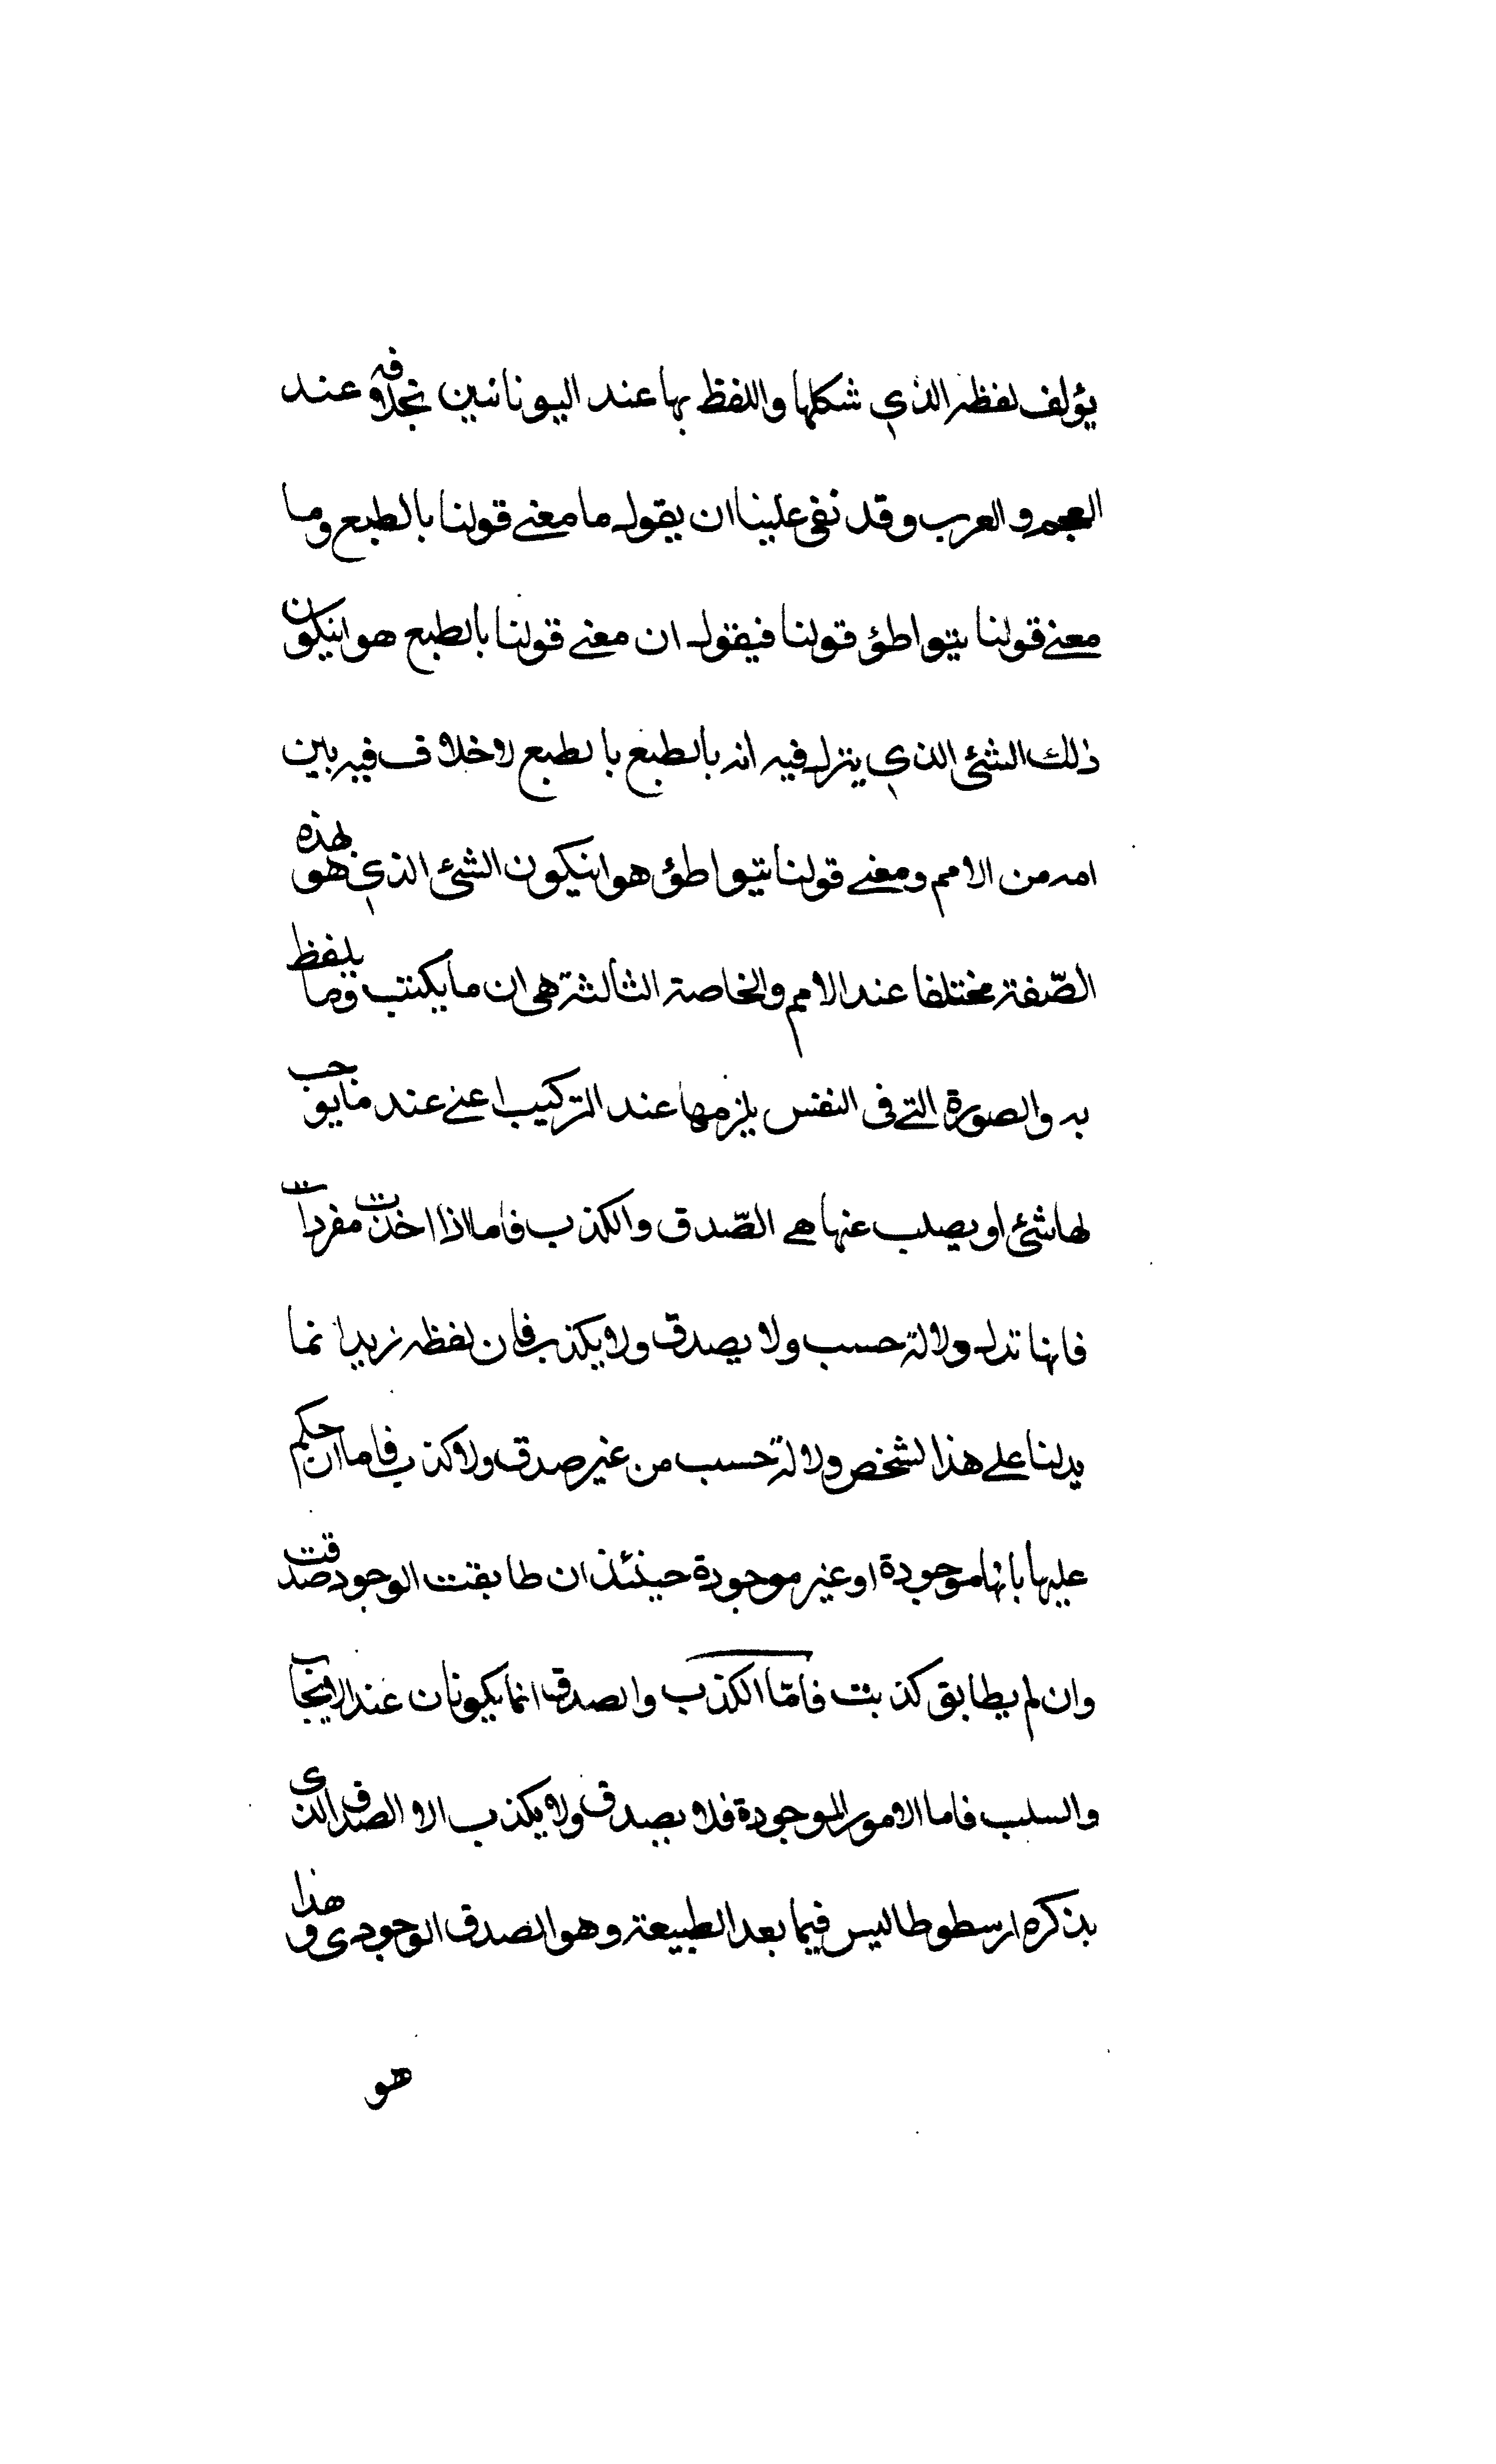 يؤلف لفظه الذي شكلها واللفظ بها عند اليونانين بخلافه عند
العجم والعرب وقد نفى علينا ان يقول ما معنے قولنا بالطبع وما
معنے قولنا بتواطؤ قولنا فيقول ان معنے قولنا بالطبع هو انيكون
ذلك الشئ الذي ينزل فيه انه بالطبع بالطبع لاخلاف فيه بين
امه من الامم ومعنے قولنا بتواطؤ هو انيكون الشئ الذي هو بهذه
الصّفة مختلفا عند الامم والخاصة الثالثة هى ان ما يكتب وما يلفظ
به والصورة التے فى النفس يلزمها عند التركيب اعنے عند مايوجب
لها شئ او يصلب عنها هے الصّدق والكذب فاما اذا اخذت مفردات
فانها تدل دلالة حسب ولا يصدق ولا يكذب فان لفظه زيد انما
يدلنا علے هذا لشخص دلالة حسب من غير صدق ولا كذب فاما ان حكم
عليها بانها موجودة او غير موجودة حينئذ ان طابقت الوجود صدقت
وان لم يطابق كذبت فامّا الكذب والصدق انما يكونان عند الايجاب
والسلب فاما الامور الموجودة فلا يصدق ولا يكذب الا الصدق الذى
بذكره ارسطوطاليس فيما بعد الطبيعة وهو الصدق الوجودى وهذا
هو